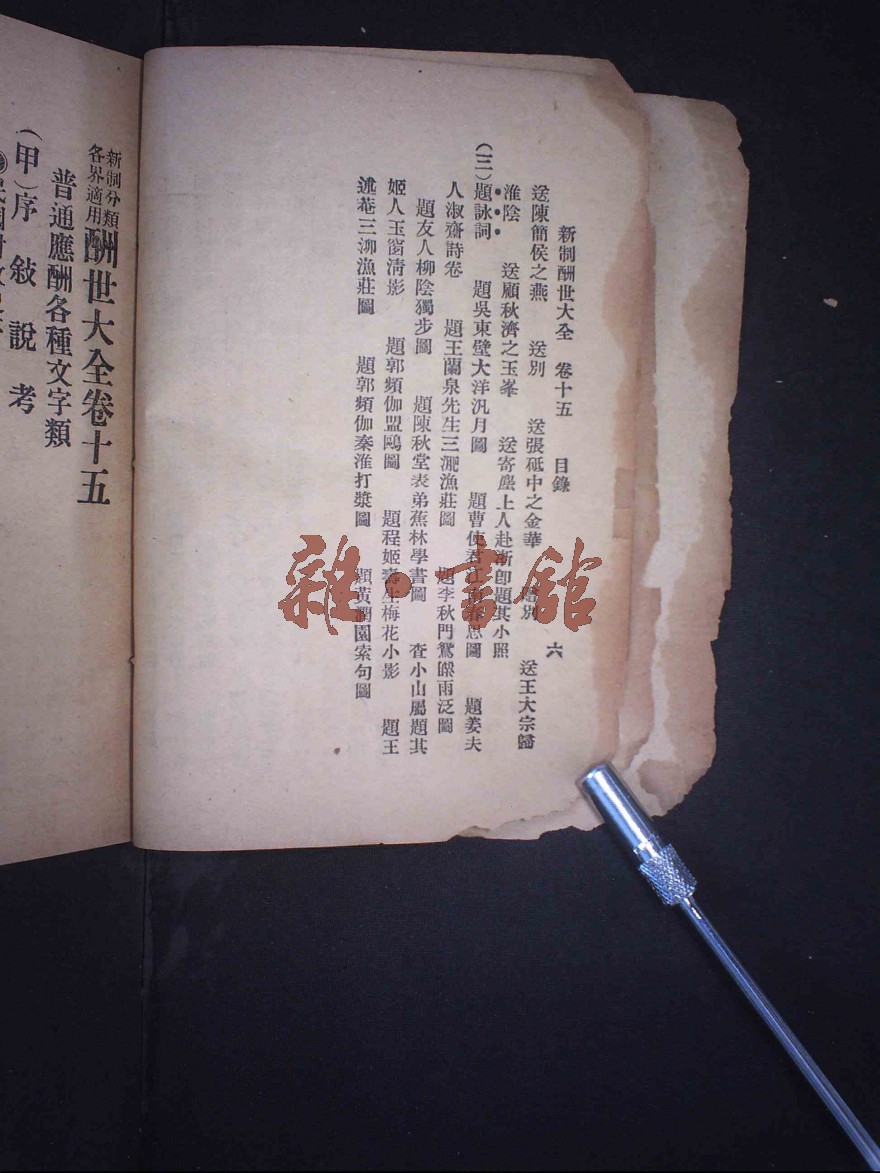 新制酬世大全　卷十五　　目錄　　六
送陳簡侯之燕　　送別　　送張砥中之金華　　別　　送王大宗歸
淮陰　　送顧秋濟之玉峯　　送寄塵上人赴浙卽題其小照
（三）題詠詞　　題吳東壁大洋汎月圖　　題曹使君江春思圖　　題姜夫
人淑齋詩卷　　題王蘭泉先生三泖漁莊圖　　題李秋門鴛湖雨泛圖
題友人柳陰獨步圖　　題陳秋堂表弟蕉林學書圖　　查小山屬題其
姬人玉窗淸影　　題郭頻伽盟鷗圖　　題程姬壽生梅花小影　　題王
述菴三泖漁莊圖　　題郭頻伽秦淮打槳圖　　題黃澗園索句圖
新制分類
各界適用
酬世大全卷十五
普通應酬各種文字類
（甲）序　敍　說　考
民國財政
雜·書館